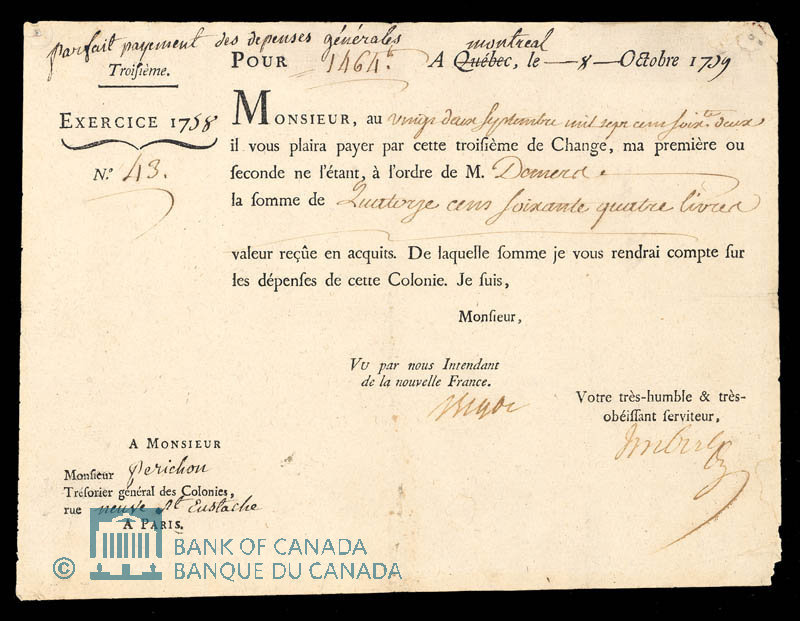 parfait payement des depenses générales
Troiſième.
POUR 1464.ᵗ A Québec, montreal le — 8 — Octobre 1759
EXERCICE 1758
N.º 43.
MONSIEUR, au vingt deux Septembre mil sept cens soix.te deux
il vous plaira payer par cette troiſième de Change, ma première ou
ſeconde ne l'étant, à l'ordre de M. Domerc
la ſomme de Quatorze cens soixante quatre livres
valeur reçûe en acquits. De laquelle ſomme je vous rendrai compte ſur
les dépenſes de cette Colonie. Je ſuis,
Monſieur,
VU par nous Intendant
de la nouvelle France.
Bigot
Votre très-humble & très-
obéiſſant ſerviteur,
Imbert
A MONSIEUR
Monſieur Perichon
Tréſorier général des Colonies,
rue neuve St Eustache
A PARIS.
© BANK OF CANADA
BANQUE DU CANADA